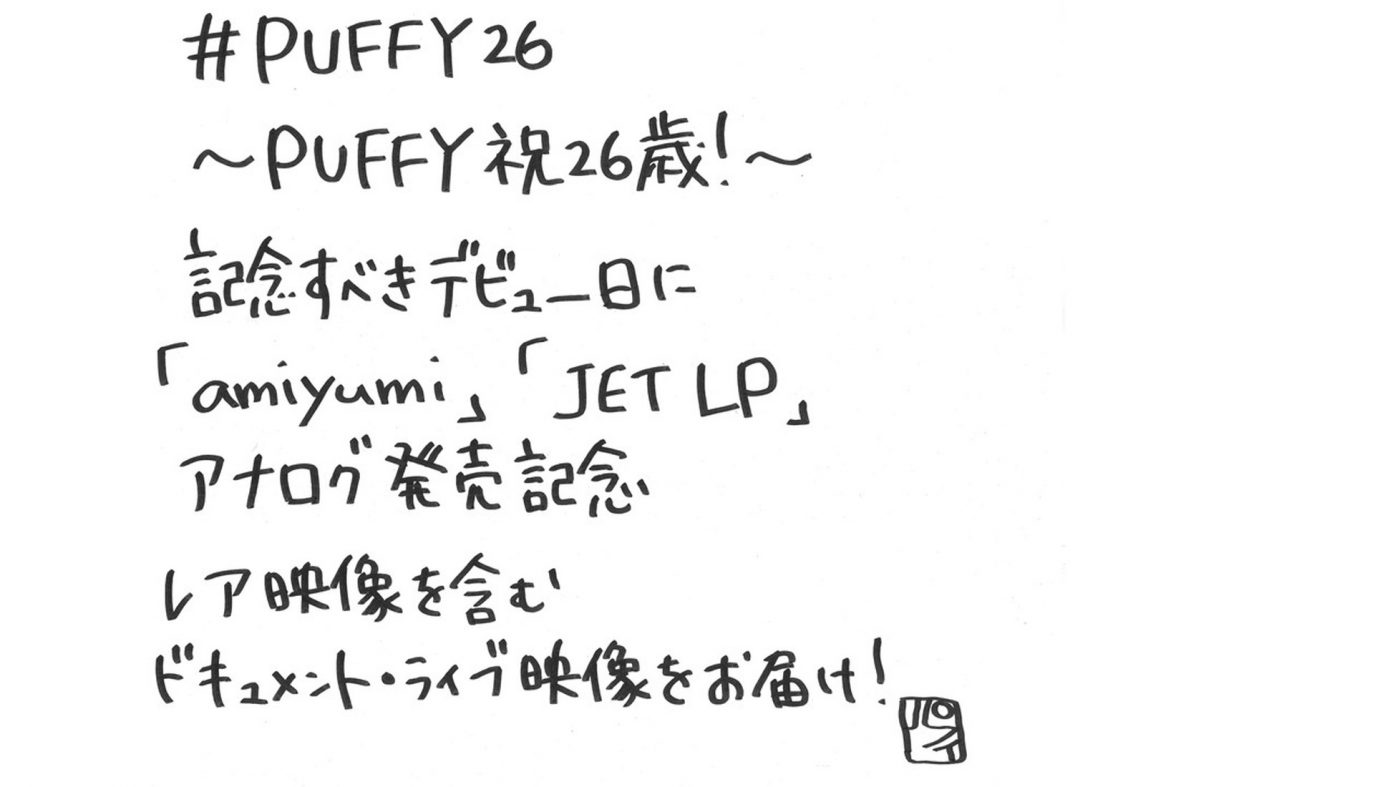 #PUFFY26
～PUFFY祝26歳!～
記念すべきデビュー日に
「amiyumi」「JET LP」
アナログ発売記念
レア映像を含む
ドキュメント・ライブ映像をお届け!
パイ